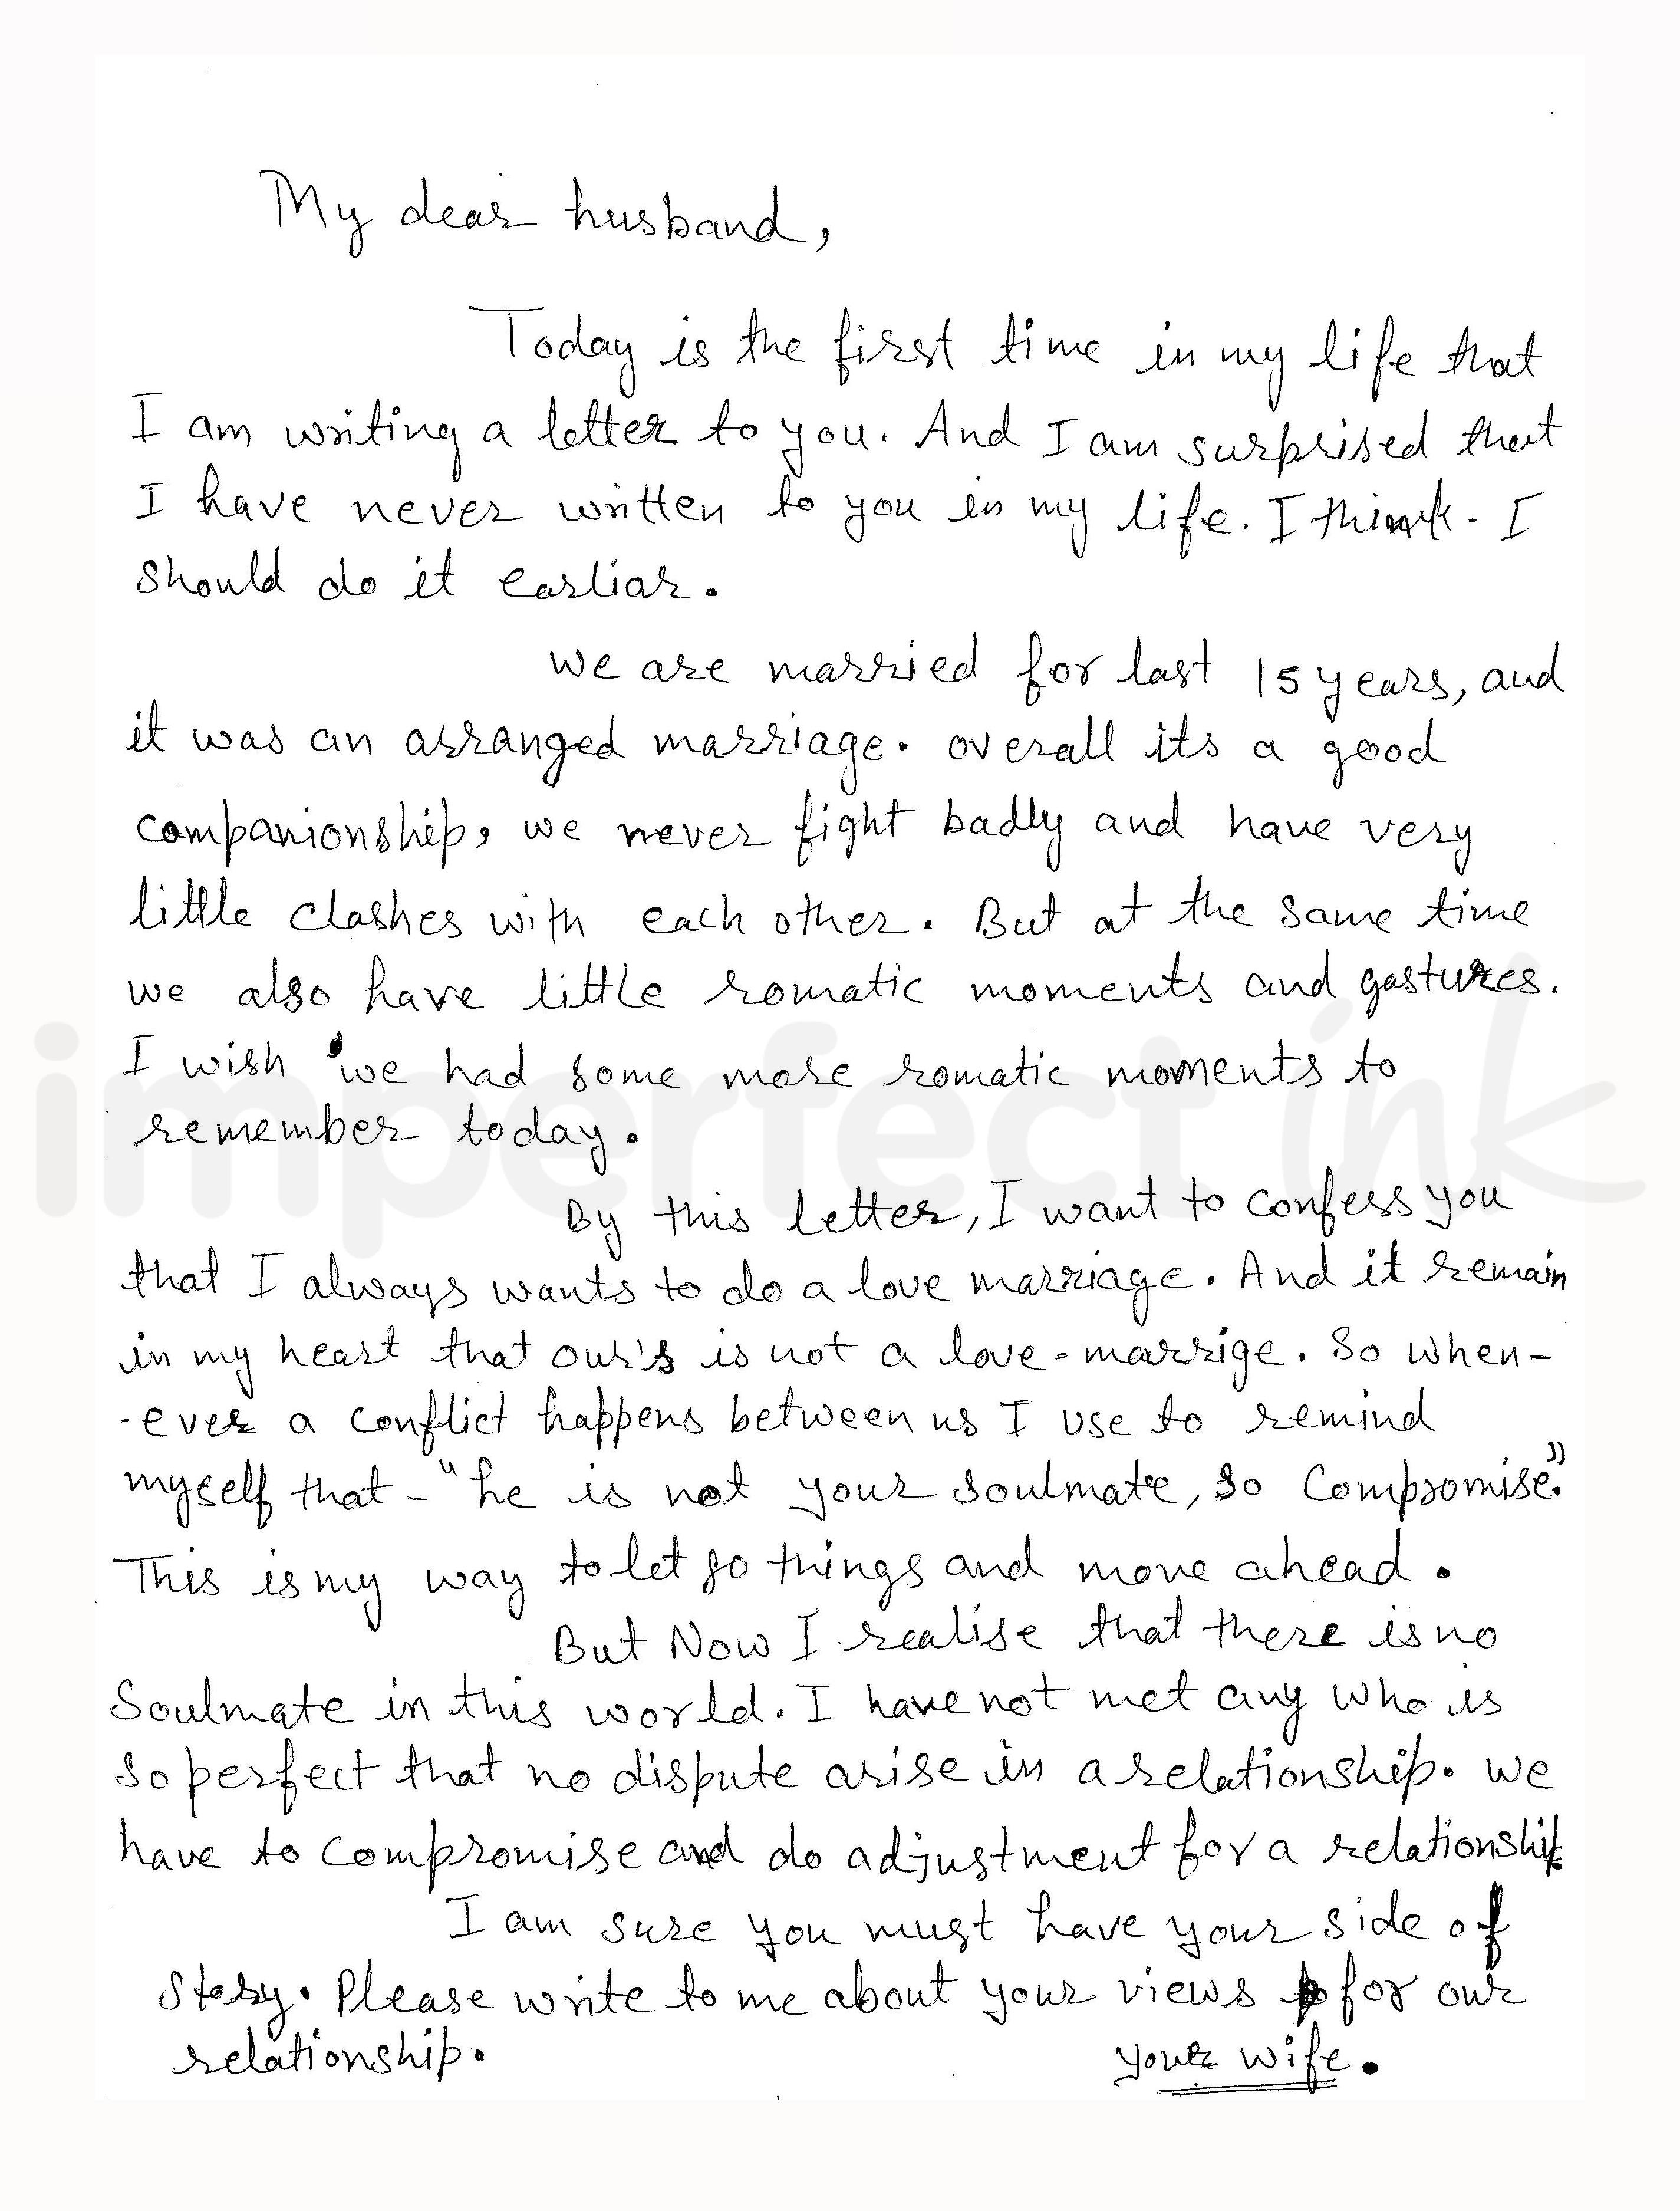 My dear husband,
Today is the first time in my life that
I am writing a letter to you. And I am surprised that
I have never written to you in my life. I think. I
should do it earliar.
we are married for last 15 years, and
it was an arranged marriage. overall its a good
companionship, we never fight badly and have very
little clashes with each other. But at the same time
we also have little romatic moments and gastures.
I wish we had some more romatic moments to
remember today.
imperfect ink
By this letter, I want to confess you
that I always wants to do a love marriage. And it remain
in my heart that our's is not a love-marrige. So when-
-ever a conflict happens between us I use to remind
myself that - "he is not your soulmate, so compromise."
This is my way to let go things and move ahead.
But Now I realise that there is no
Soulmate in this world. I have not met any who is
so perfect that no dispute arise in a relationship. we
have to compromise and do adjustment for a relationship
I am sure you must have your side of
story. Please write to me about your views for our
relationship.
your wife.